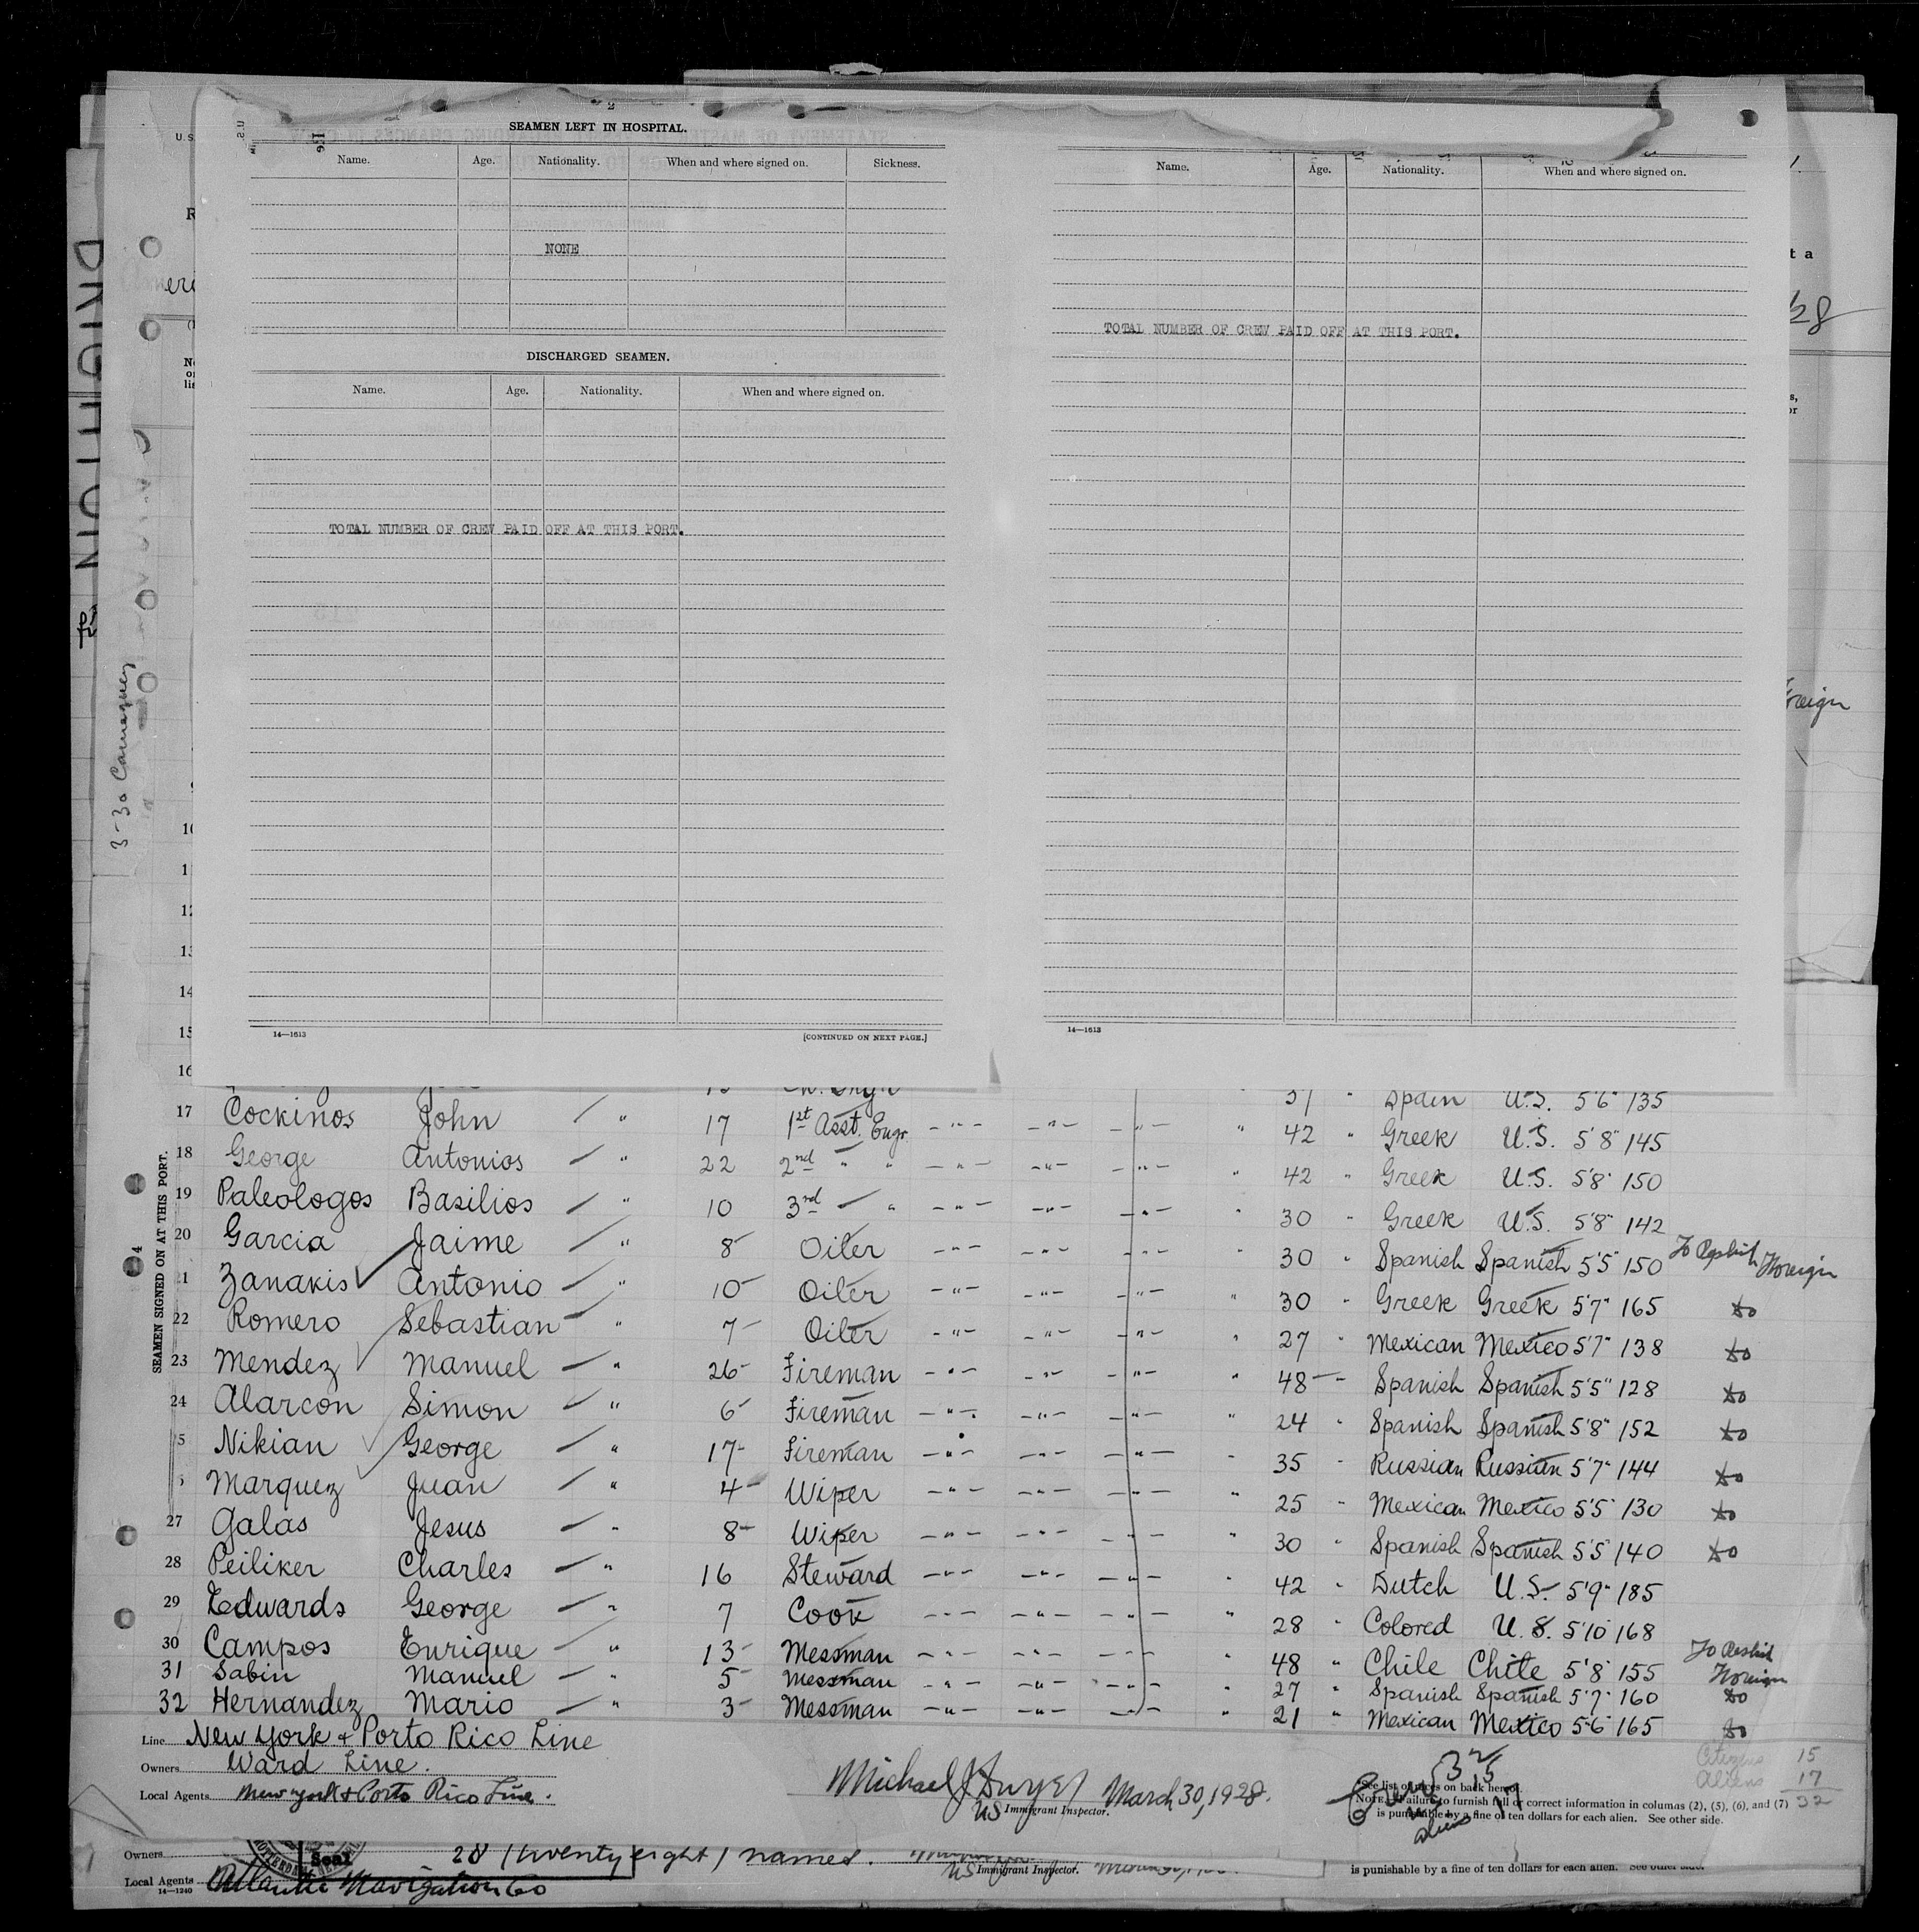 SEAMEN LEFT IN HOSPITAL.
Name. Age. Nationality. When and where signed on. Sickness.
NONE
DISCHARGED SEAMEN.
Name. Age. Nationality. When and where signed on.
TOTAL NUMBER OF CREW PAID OFF AT THIS PORT.
14—1613 [CONTINUED ON NEXT PAGE.]
Name. Age. Nationality. When and where signed on.
TOTAL NUMBER OF CREW PAID OFF AT THIS PORT.
14—1613
3-30 Camaguey
SEAMEN SIGNED ON AT THIS PORT.
10
11
12
13
14
15
16 Spain U.S. 5'6" 135
17 Cockinos John " 17 1st Asst. Engr. -"- -"- -"- " 42 " Greek U.S. 5'8" 145
18 George Antonios " 22 2nd " " -"- -"- -"- " 42 " Greek U.S. 5'8" 150
19 Paleologos Basilios " 10 3rd " -"- -"- -"- " 30 " Greek U.S. 5'8" 142
20 Garcia Jaime " 8 Oiler -"- -"- -"- " 30 " Spanish Spanish 5'5" 150 To Reship Foreign
21 Zanakis Antonio " 10 Oiler -"- -"- -"- " 30 " Greek Greek 5'7" 165 do
22 Romero Sebastian " 7 Oiler -"- -"- -"- " 27 " Mexican Mexico 5'7" 138 do
23 Mendez Manuel " 26 Fireman -"- -"- -"- " 48 " Spanish Spanish 5'5" 128 do
24 Alarcon Simon " 6 Fireman -"- -"- -"- " 24 " Spanish Spanish 5'8" 152 do
5 Nikian George " 17 Fireman -"- -"- -"- " 35 " Russian Russian 5'7" 144 do
Marquez Juan " 4 Wiper -"- -"- -"- " 25 " Mexican Mexico 5'5" 130 do
27 Galas Jesus " 8 Wiper -"- -"- -"- " 30 " Spanish Spanish 5'5" 140 do
28 Peiliker Charles " 16 Steward -"- -"- -"- " 42 " Dutch U.S. 5'9" 185
29 Edwards George " 7 Cook -"- -"- -"- " 28 " Colored U.S. 5'10" 168
30 Campos Enrique " 13 Messman -"- -"- -"- " 48 " Chile Chile 5'8" 155 To Reship Foreign
31 Sabin Manuel " 5 Messman -"- -"- -"- " 27 " Spanish Spanish 5'7" 160 do
32 Hernandez Mario " 3 Messman -"- -"- -"- " 21 " Mexican Mexico 5'6" 165 do
Line New York & Porto Rico Line
Owners Ward Line.
Local Agents New York & Porto Rico Line.
Michael J Dwyer March 30, 1928.
US Immigrant Inspector.
Citizens 15
Aliens 17
32
See list of races on back hereof.
NOTE.—Failure to furnish full or correct information in columns (2), (5), (6), and (7)
is punishable by a fine of ten dollars for each alien. See other side.
Owners Seal 28 (twenty eight) names.
US Immigrant Inspector.
Local Agents Atlantic Navigation Co
14—1240
is punishable by a fine of ten dollars for each alien. See other side.